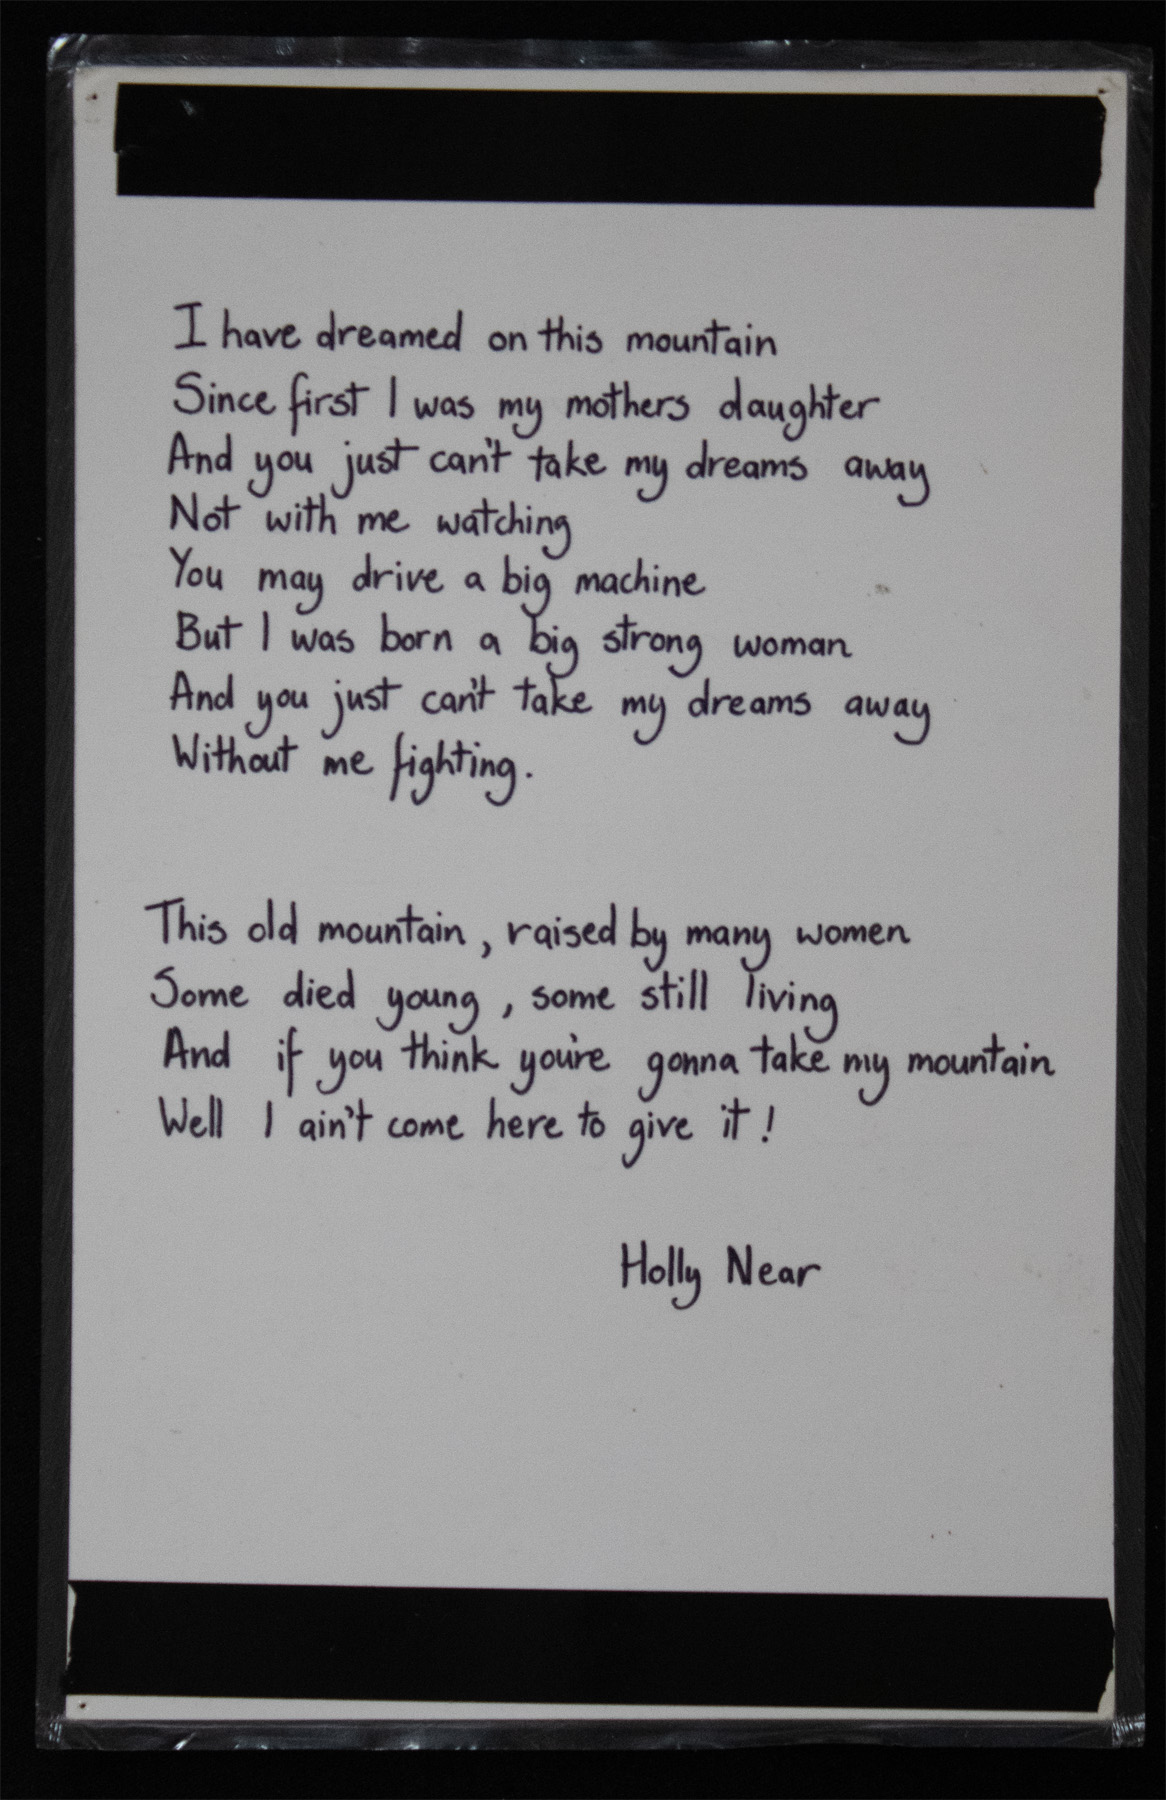 I have dreamed on this mountain
Since first I was my mothers daughter
And you just can't take my dreams away
Not with me watching
You may drive a big machine
But I was born a big strong woman
And you just can't take my dreams away
Without me fighting.
This old mountain, raised by many women
Some died young, some still living
And if you think you're gonna take my mountain
Well I ain't come here to give it!
Holly Near